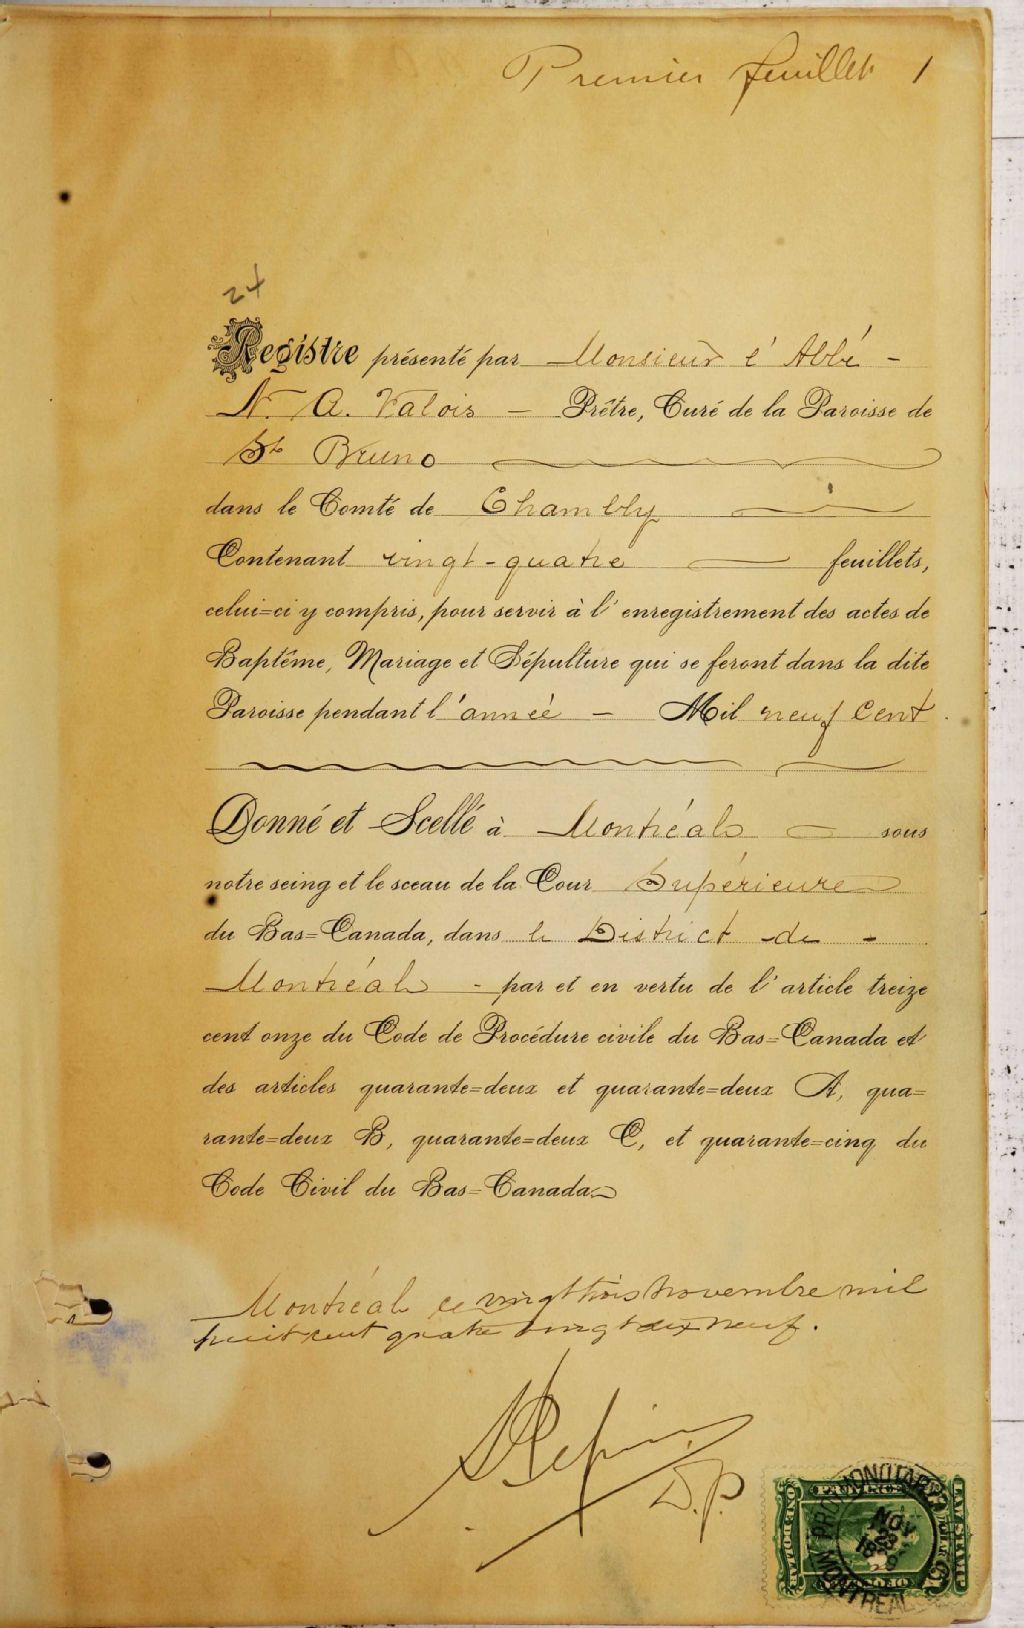 Premier feuillet 1
24
Registre présenté par Monsieur l'Abbé -
N. A. Valois - Prêtre, Curé de la Paroisse de
St Bruno
dans le Comté de Chambly
Contenant vingt-quatre feuillets,
celui=ci y compris, pour servir à l'enregistrement des actes de
Baptême, Mariage et Sépulture qui se feront dans la dite
Paroisse pendant l'année - Mil neuf Cent
Donné et Scellé à Montréal sous
notre seing et le sceau de la Cour Supérieure
du Bas=Canada, dans le District de -
Montréal - par et en vertu de l'article treize
cent onze du Code de Procédure civile du Bas=Canada et
des articles quarante=deux et quarante=deux A, qua=
rante=deux B, quarante=deux C, et quarante=cinq du
Code Civil du Bas=Canada
Montréal ce vingt trois novembre mil
huit cent quatre vingt dix neuf.
D.P.
PROTHONOTARY
NOV
MONTREAL
LAW STAMP
ONE DOLLAR